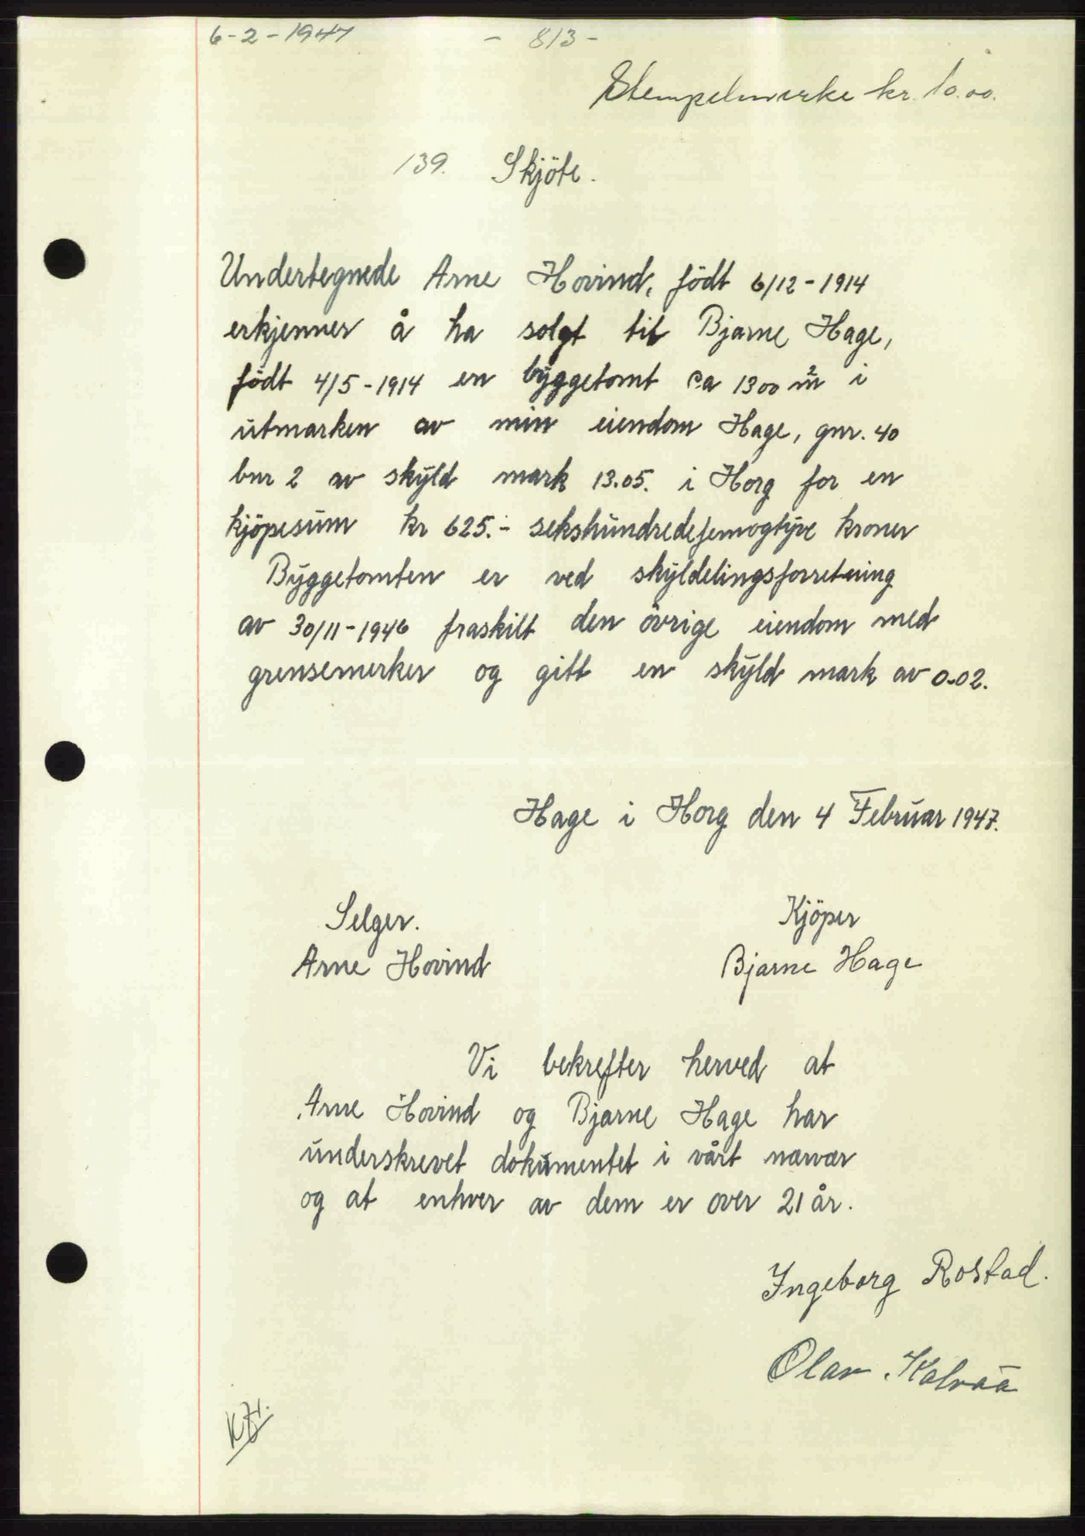 6-2-1947 - 813 -
Stempelmerke kr. 10.00.
139. Skjöte.
Undertegnede Arne Hovind, födt 6/12-1914
erkjenner å ha solgt til Bjarne Hage,
födt 4/5-1914 en byggetomt ca 1300 m² i
utmarken av min eiendom Hage, gnr. 40
bnr 2 av skyld mark 13.05. i Horg for en
kjöpesum kr 625.- sekshundredefemogtyve kroner
Byggetomten er ved skyldelingsforretning
av 30/11-1946 fraskilt den övrige eiendom med
grensemerker og gitt en skyld mark av 0.02.
Hage i Horg den 4 Februar 1947.
Selger. Kjöper
Arne Hovind Bjarne Hage
Vi bekrefter herved at
Arne Hovind og Bjarne Hage har
underskrevet dokumentet i vårt nærvær
og at enhver av dem er over 21 år.
Ingeborg Rostad.
Olav Kalvaa